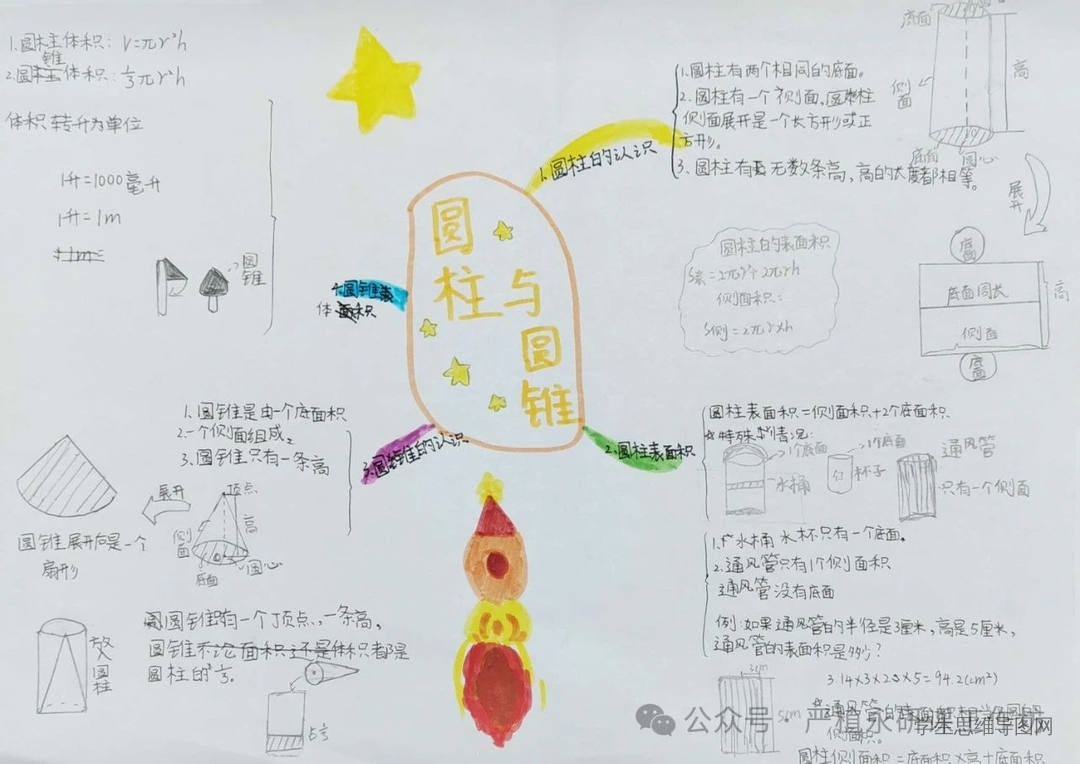 圆柱与圆锥
1.圆柱的认识
1.圆柱有两个相同的底面。
2.圆柱有一个侧面,圆柱
侧面展开是一个长方形或正
方形。
3.圆柱有无数条高,高的长度都相等。
底面
侧面
高
底面
圆心
展开
底
面
底面周长
侧面
高
底
面
圆柱的表面积
S表=2πr²+2πrh
侧面积:
S侧=2πr×h
2.圆柱表面积
圆柱表面积=侧面积+2个底面积
☆特殊情况:
1个底面
水桶
1个底面
杯子
通风管
只有一个侧面
1.水桶 水杯只有一个底面。
2.通风管只有1个侧面积
通风管没有底面
例:如果通风管的半径是3厘米,高是5厘米,
通风管的表面积是多少?
3.14×3×2×5=94.2(cm²)
3cm
5cm
通风管的
侧面积。
圆柱侧面积=底面积×高+底面积
3.圆锥的认识
1.圆锥是由一个底面积
2.一个侧面组成。
3.圆锥只有一条高
展开
顶点
高
侧面
底面
圆心
圆锥展开后是一个
扇形
圆锥只有一个顶点,一条高。
圆锥不论面积还是体积都是
圆柱的⅓。
放入圆柱
占⅓
4.圆锥
体积
1.圆柱体积:V=πr²h
锥
2.圆柱体积:⅓πr²h
体积转升为单位
1升=1000毫升
1升=1m
圆锥
公众号
学生思维导图网